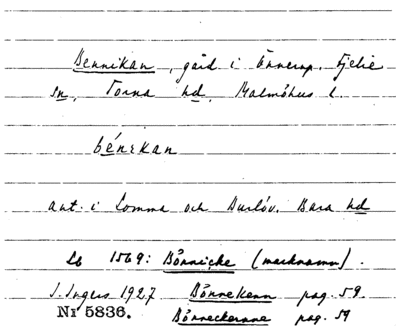 Bennikan, gård i Önnerup, Fjelie
sn, Torna hd, Malmöhus l.
bénikan
ant. i Lomma och Burlöv, Bara hd
Lb 1569: Bönnicke (marknamn).
J. Ingers 1927 Bönnekenn pag. 59.
Nr 5836. Bönneckenne pag. 59